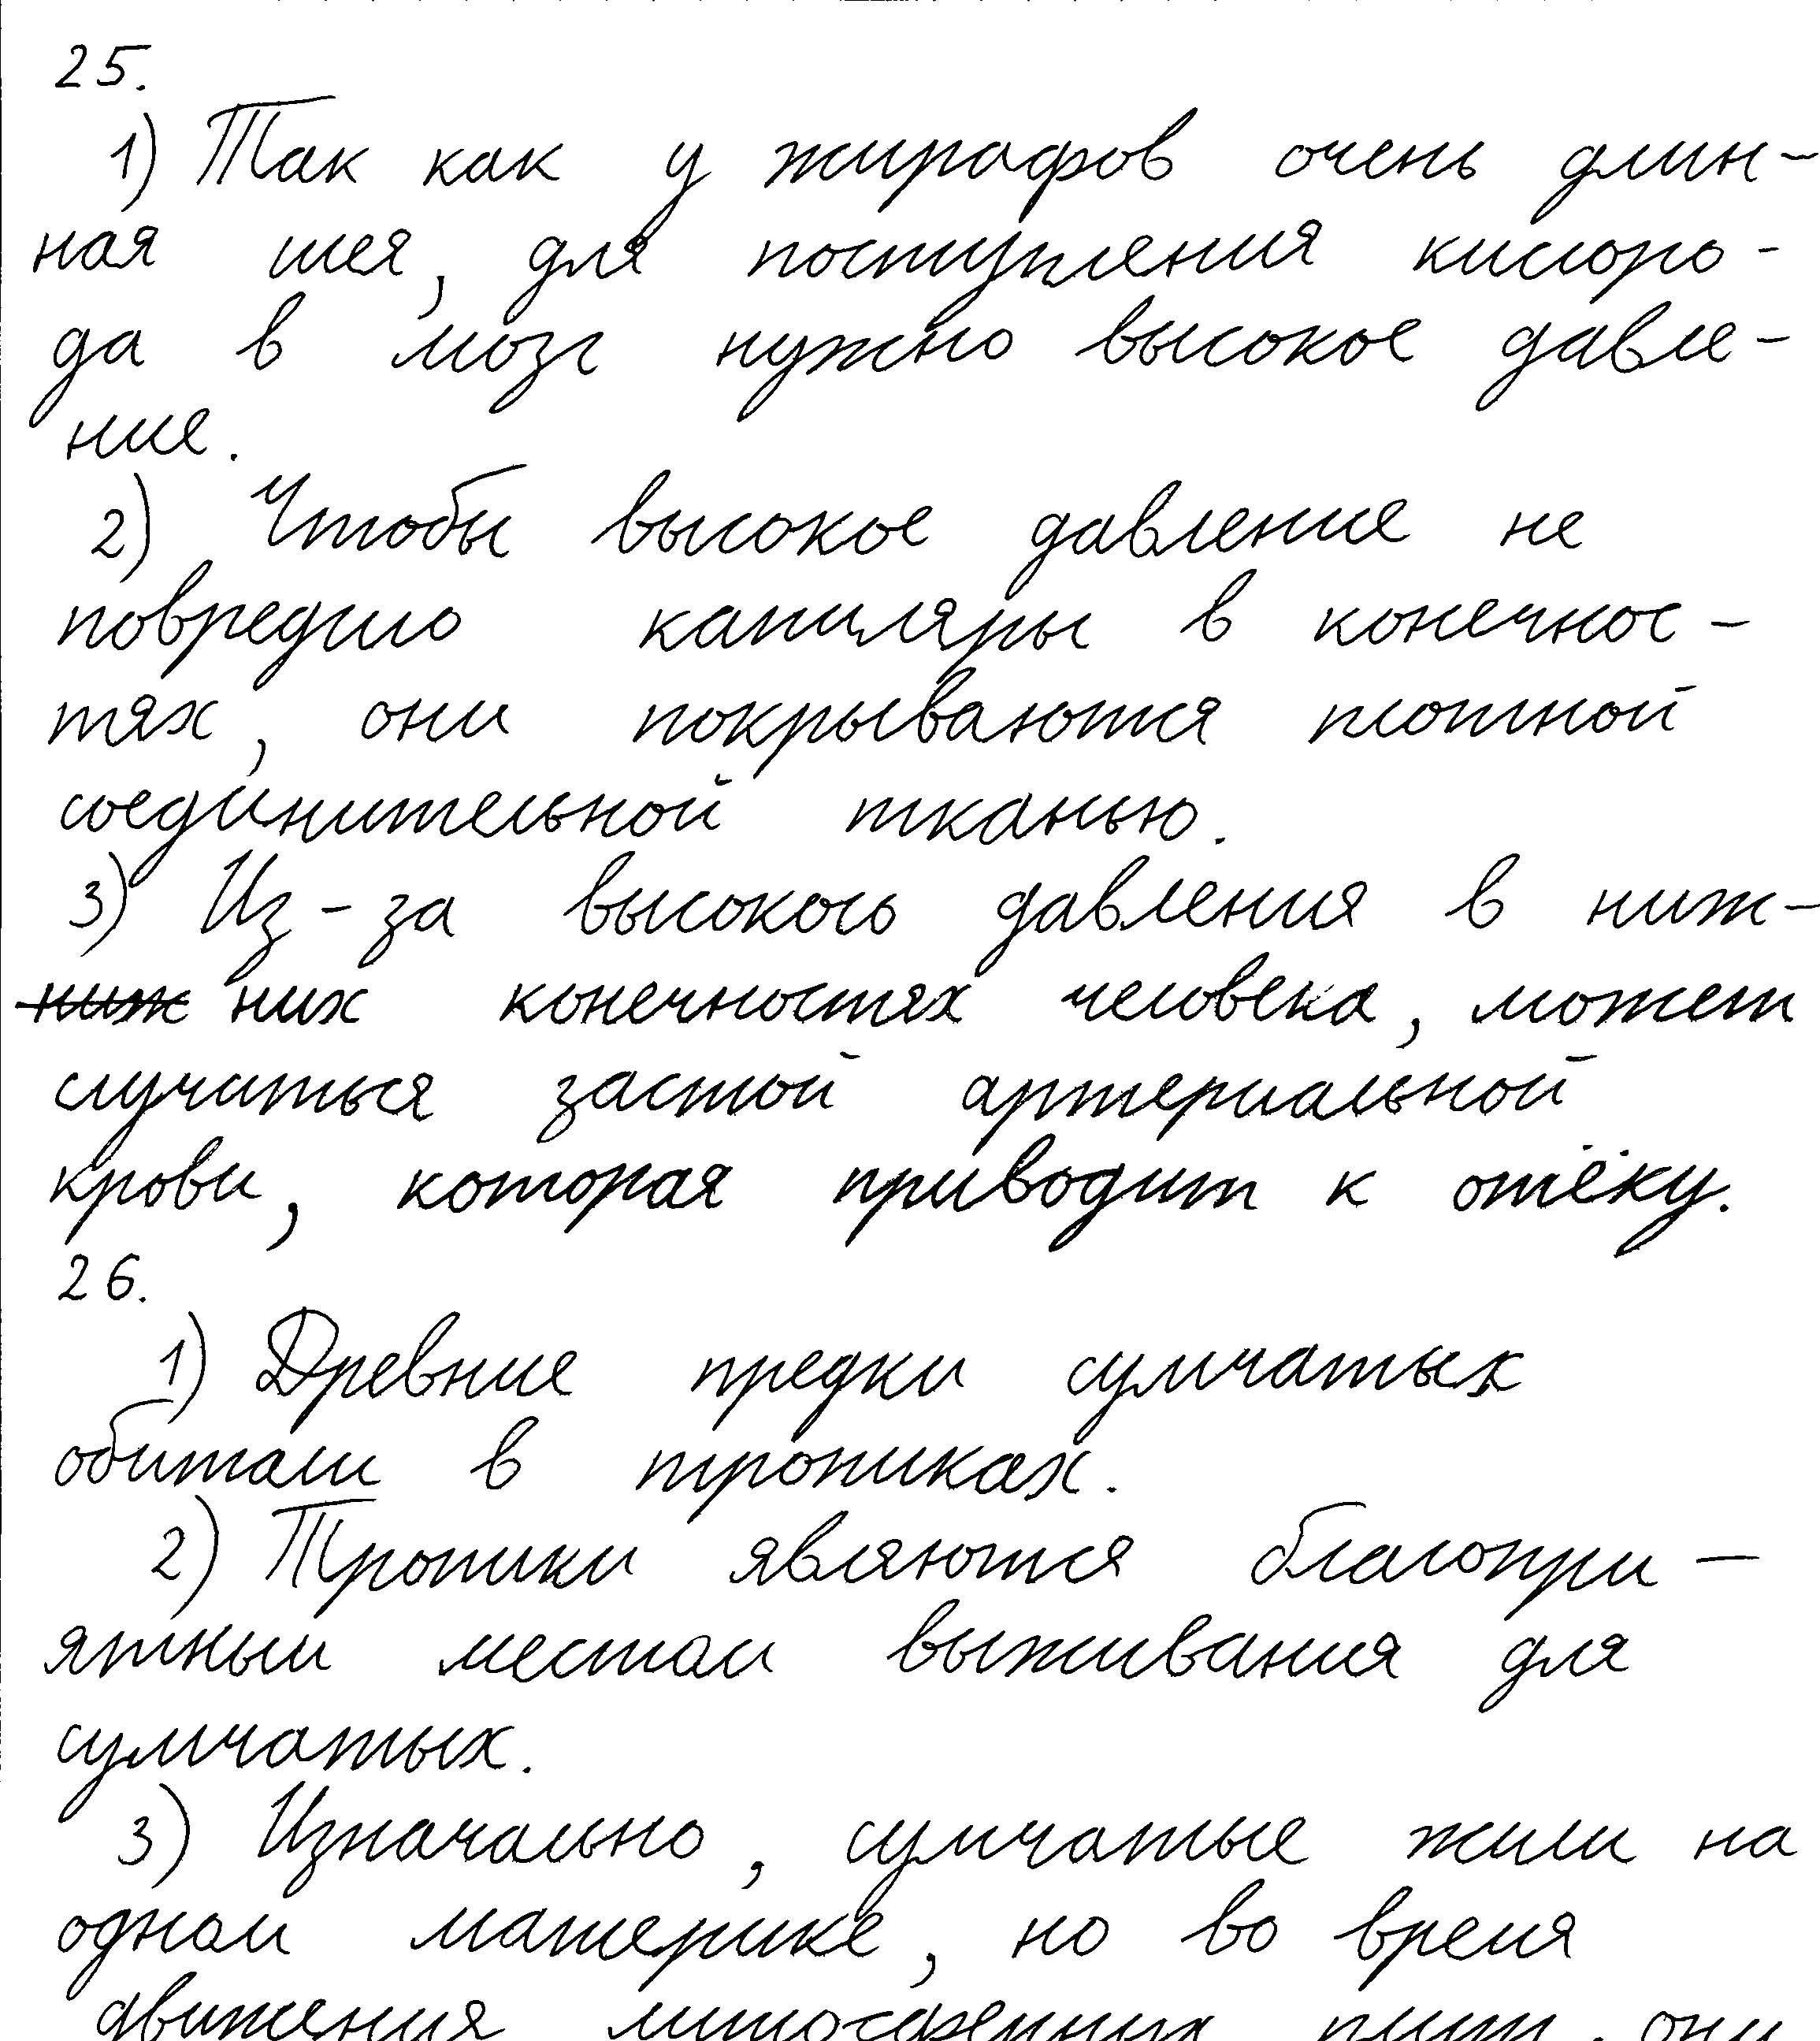 25.
1) Так как у жирафов очень длин-
ная шея, для поступления кислоро-
да в мозг нужно высокое давле-
ние.
2) Чтобы высокое давление не
повредило капиляры в конечнос-
тях, они покрываются плотной
соединительной тканью.
3) Из-за высокого давления в ниж-
ниж них конечностях человека, может
случиться застой артериальной
крови, которая приводит к отёку.
26.
1) Древние предки сумчатых
обитали в тропиках.
2) Тропики являются благопри-
ятным местом выживания для
сумчатых.
3) Изначально, сумчатые жили на
одном материке, но во время
движения литосферных плит, они